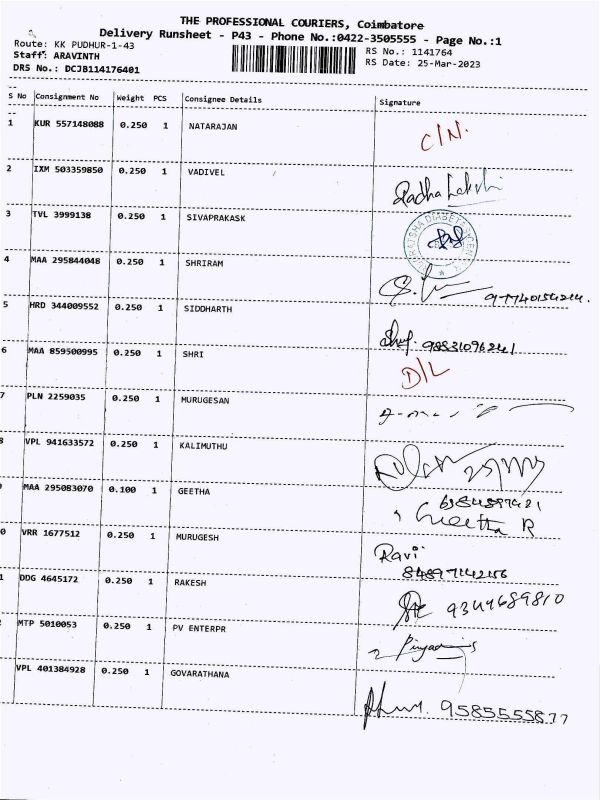 THE PROFESSIONAL COURIERS, Coimbatore
Delivery Runsheet - P43 - Phone No.:0422-3505555 - Page No.:1
Route: KK PUDHUR-1-43
RS No.: 1141764
Staff: ARAVINTH
RS Date: 25-Mar-2023
DRS No.: DCJB114176401
S No Consignment No Weight PCS Consignee Details Signature
1 KUR 557148088 0.250 1 NATARAJAN C/N.
2 IXM 503359850 0.250 1 VADIVEL Radha Lakshi
3 TVL 3999138 0.250 1 SIVAPRAKASK
4 MAA 295844048 0.250 1 SHRIRAM
5 HRD 344009552 0.250 1 SIDDHARTH
6 MAA 859500995 0.250 1 SHRI D/L
7 PLN 2259035 0.250 1 MURUGESAN
8 VPL 941633572 0.250 1 KALIMUTHU
MAA 295083070 0.100 1 GEETHA Geetha R
0 VRR 1677512 0.250 1 MURUGESH Ravi
1 DDG 4645172 0.250 1 RAKESH 9344689810
2 MTP 5010053 0.250 1 PV ENTERPR
VPL 401384928 0.250 1 GOVARATHANA 9585555877